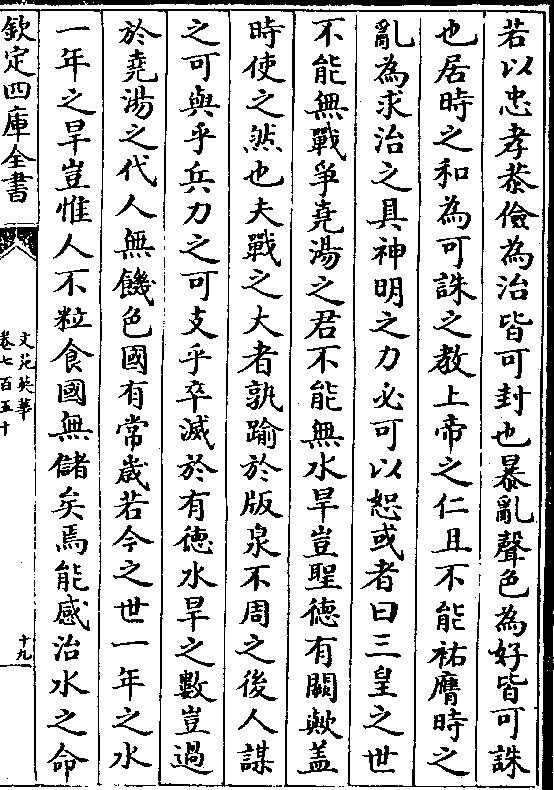 若以忠孝恭儉為治皆可封也暴亂聲色為好皆可誅
也居時之和為可誅之教上帝之仁且不能祐膺時之
亂為求治之具神明之力必可以恕或者曰三皇之世
不能無戰爭堯湯之君不能無水旱豈聖德有闕歟盖
時使之然也夫戰之大者孰踰於版泉不周之後人謀
之可與乎兵力之可支乎卒滅於有德水旱之數豈過
於堯湯之代人無饑色國有常歲若今之世一年之水
一年之旱豈惟人不粒食國無儲矣焉能感治水之命
欽定四庫全書
文苑英華
卷七百五十
十九